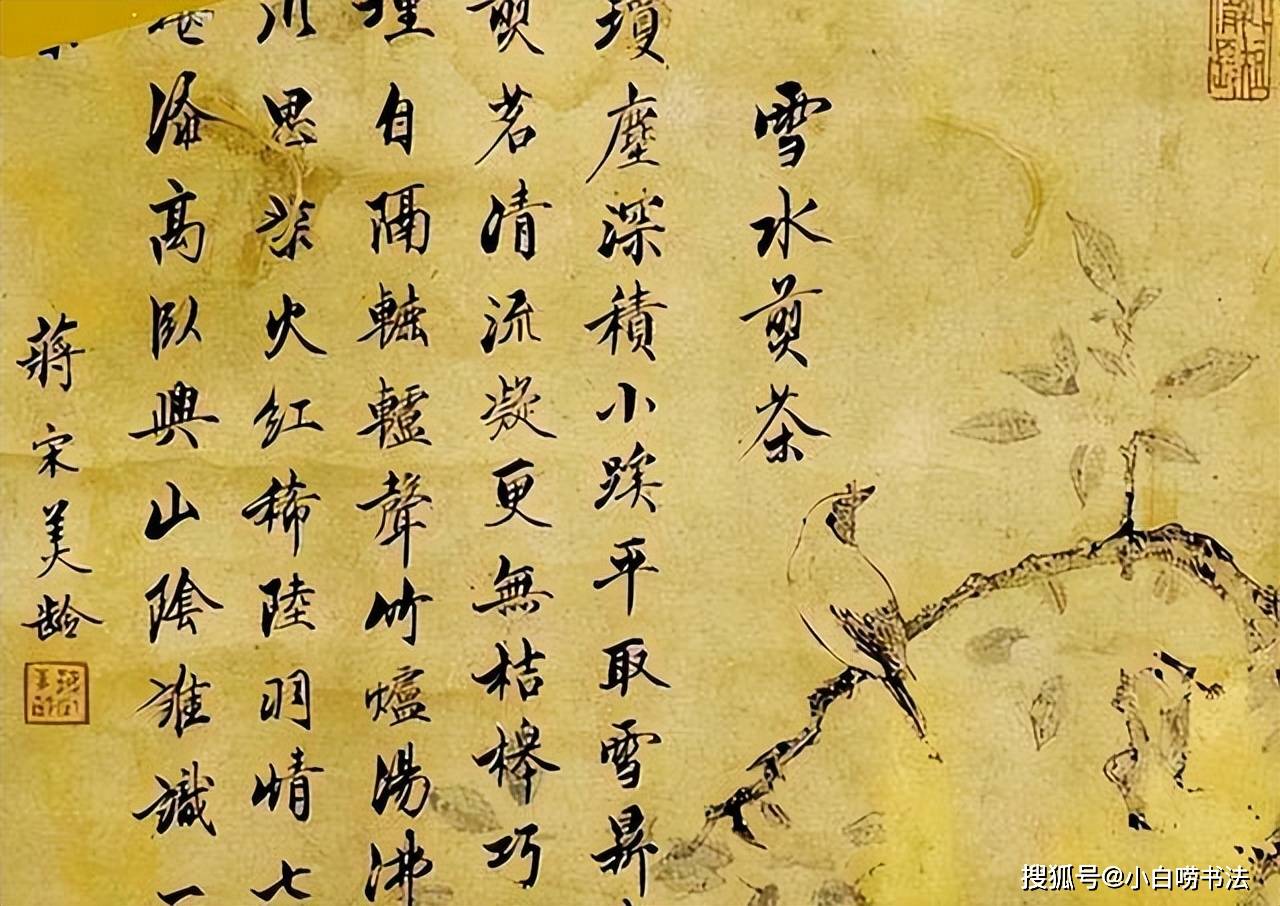 雪水煎茶
瓊塵深積小蹊平取雪鼎
煎茗清流凝更無桔槔巧
自隔轆轤聲竹爐湯沸
思火紅稀陸羽情七
添高臥興山陰誰識一
蔣宋美齡
搜狐号@小白唠书法